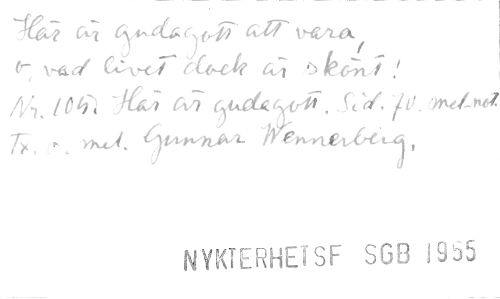 Här är gudagott att vara,
o, vad livet dock är skönt!
Nr. 105. Här är gudagott. Sid. 70. met. not.
Tx. o. mel. Gunnar Wennerberg.
NYKTERHETSF SGB 1955